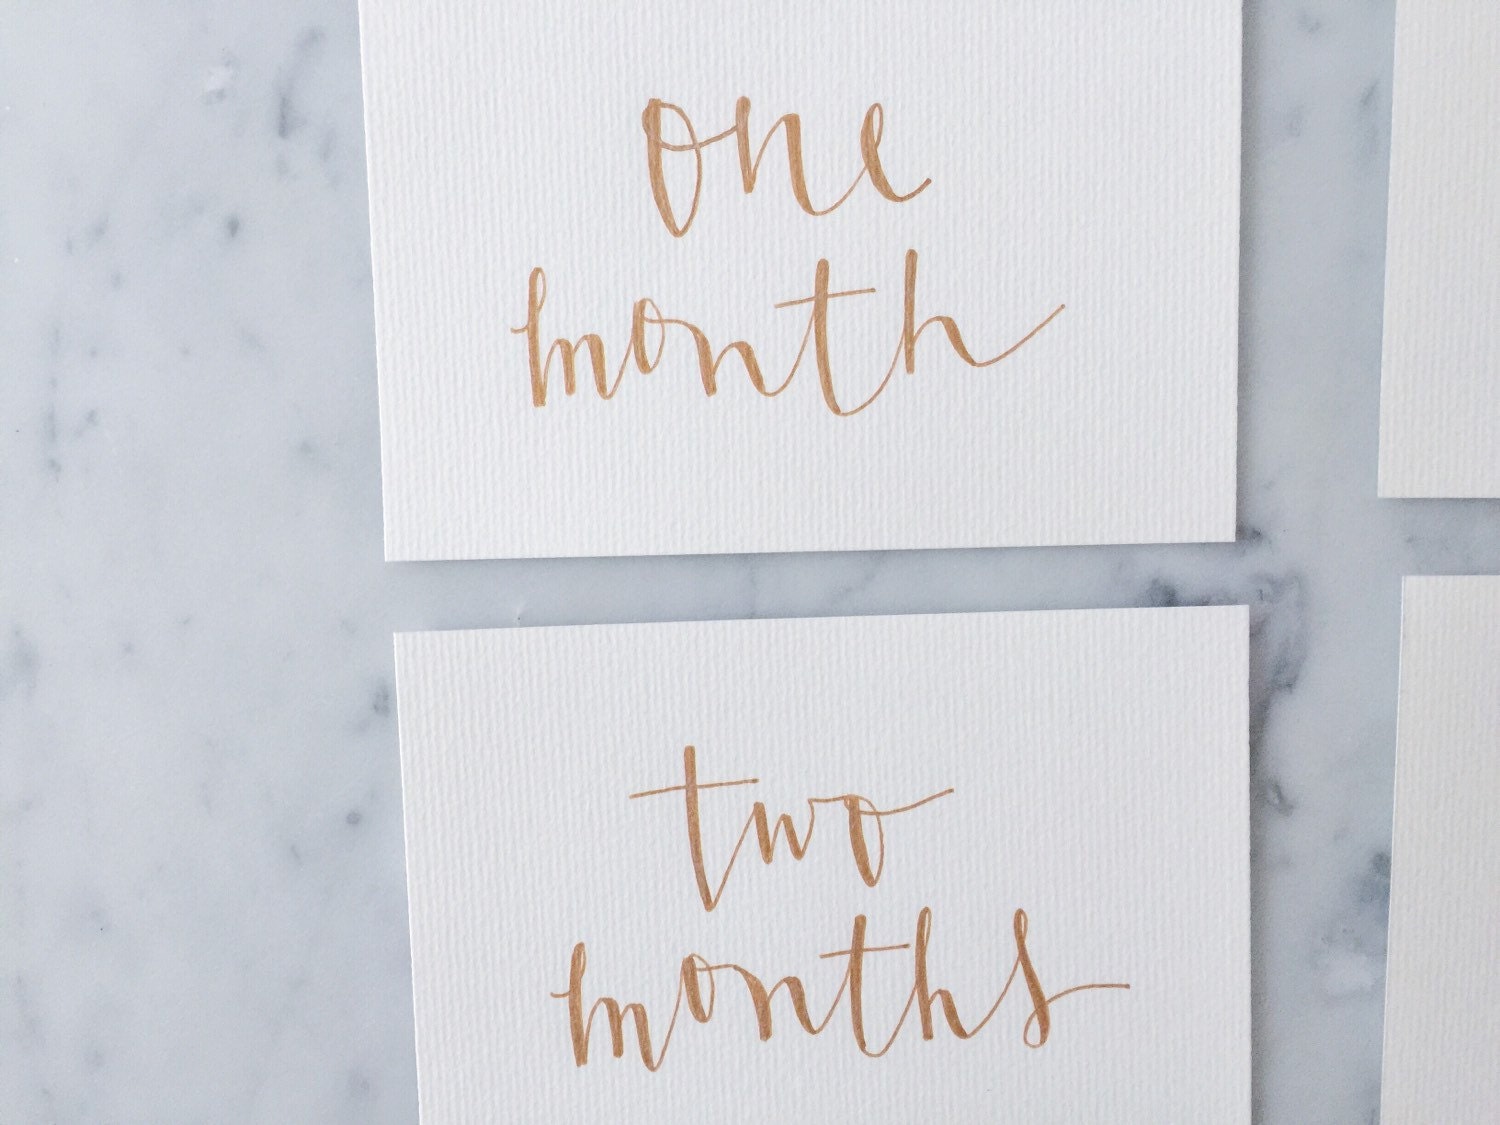 one
month
two
months